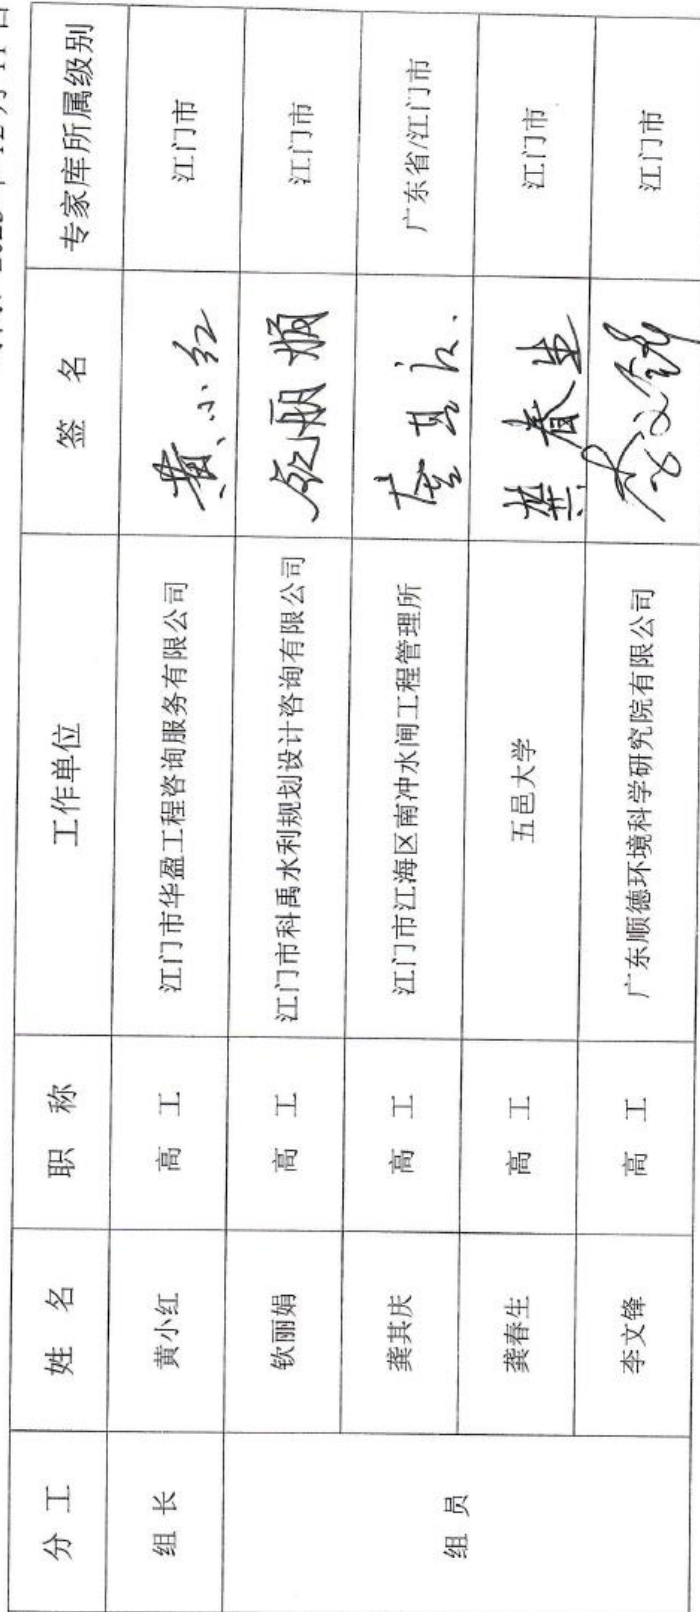 分 工 姓 名 职 称 工作单位 签 名 专家库所属级别
组 长 黄小红 高 工 江门市华盈工程咨询服务有限公司 黄小红 江门市
组 员 钦丽娟 高 工 江门市科禹水利规划设计咨询有限公司 钦丽娟 江门市
龚其庆 高 工 江门市江海区南冲水闸工程管理所 广东省/江门市
龚春生 高 工 五邑大学 龚春生 江门市
李文锋 高 工 广东顺德环境科学研究院有限公司 李文锋 江门市